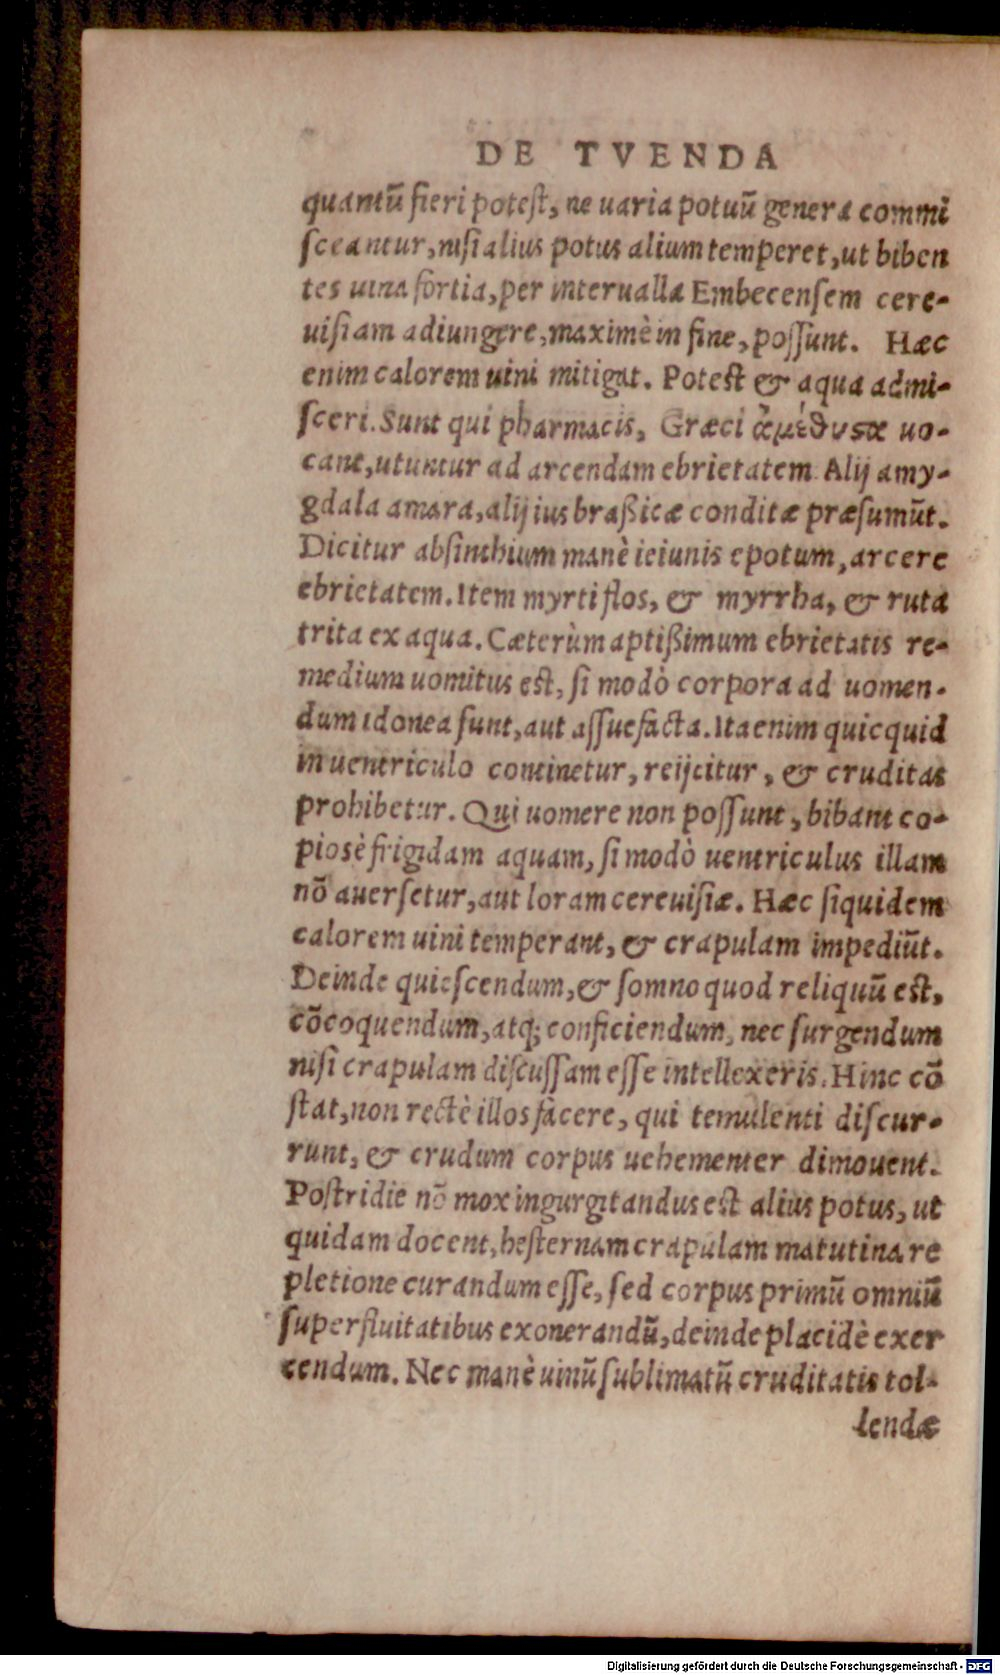 DE TVENDA
quantū fieri potest, ne uaria potuū genera commi
sceantur, nisi alius potus alium temperet, ut biben
tes uina fortia, per interualla Embecensem cere-
uisiam adiungere, maximè in fine, possunt. Hæc
enim calorem uini mitigat. Potest & aqua admi-
sceri. Sunt qui pharmacis, Græci ἀμέθυστα uo-
cant, utuntur ad arcendam ebrietatem. Alij amy-
gdala amara, alij ius braßicæ conditæ præsumūt.
Dicitur absinthium manè ieiunis epotum, arcere
ebrietatem. Item myrti flos, & myrrha, & ruta
trita ex aqua. Cæterùm aptißimum ebrietatis re-
medium uomitus est, si modò corpora ad uomen-
dum idonea sunt, aut assuefacta. Ita enim quicquid
in uentriculo continetur, reijcitur, & cruditas
prohibetur. Qui uomere non possunt, bibant co-
piosè frigidam aquam, si modò uentriculus illam
nō auersetur, aut loram cereuisiæ. Hæc siquidem
calorem uini temperant, & crapulam impediūt.
Deinde quiescendum, & somno quod reliquū est,
cōcoquendum, atq; conficiendum, nec surgendum
nisi crapulam discussam esse intellexeris. Hinc cō
stat, non rectè illos facere, qui temulenti discur-
runt, & crudum corpus uehementer dimouent.
Postridie nō mox ingurgitandus est alius potus, ut
quidam docent, hesternam crapulam matutina re
pletione curandum esse, sed corpus primū omniū
superfluitatibus exonerandū, deinde placidè exer
cendum. Nec manè uinū sublimatū cruditatis tol-
lendæ
Digitalisierung gefördert durch die Deutsche Forschungsgemeinschaft - DFG